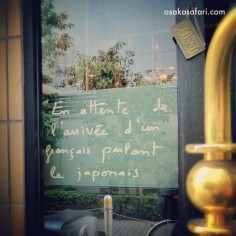 osakasafari.com
En attente de
l'arrivée d'un
français parlant
le japonais